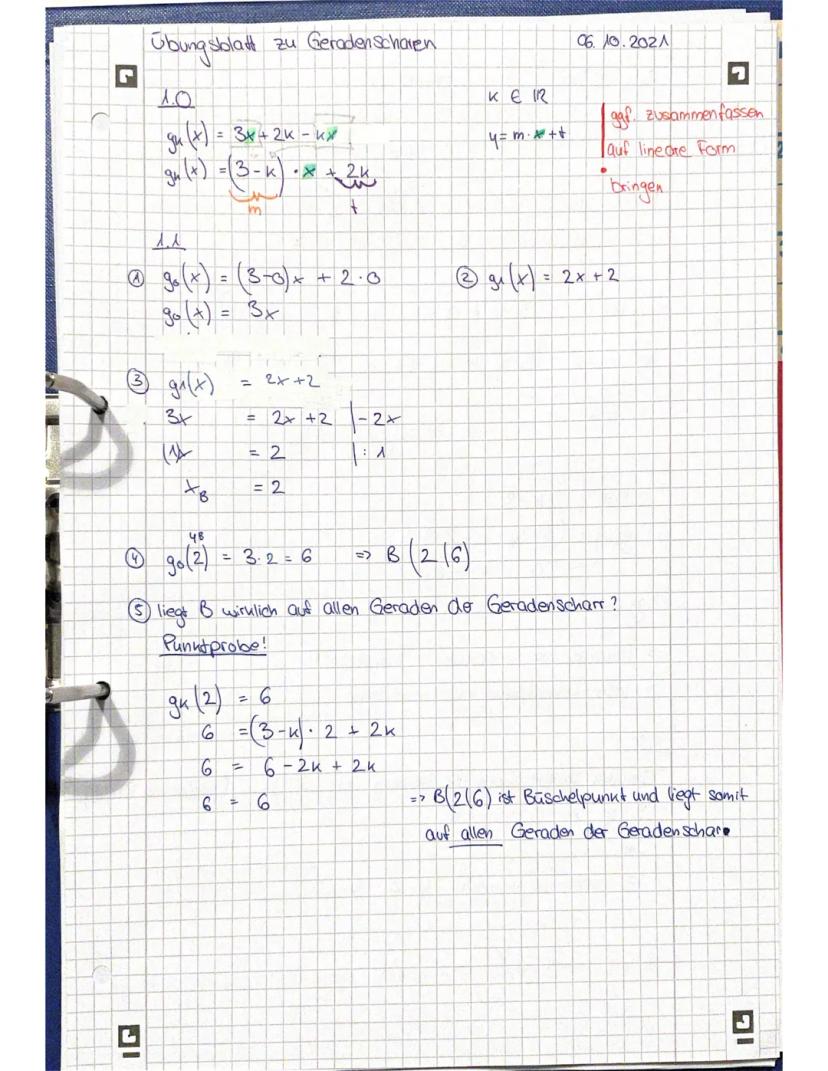 Übungsblatt zu Geradenscharen 06.10.2021
1.0 k ∈ ℝ
gk(x) = 3x + 2k - kx y = m·x+t
gk(x) = (3-k)·x + 2k
m t
ggf. zusammenfassen
auf lineare Form
bringen
1.1
① g0(x) = (3-0)x + 2·0 ② g1(x) = 2x+2
g0(x) = 3x
③ g1(x) = 2x+2
3x = 2x+2 |-2x
(1)x = 2 |:1
xB = 2
yB
④ g0(2) = 3·2 = 6 => B(2|6)
⑤ liegt B wirklich auf allen Geraden der Geradenscharr?
Punktprobe!
gk(2) = 6
6 = (3-k)·2 + 2k
6 = 6-2k+2k
6 = 6 => B(2|6) ist Büschelpunkt und liegt somit
auf allen Geraden der Geradenschar.